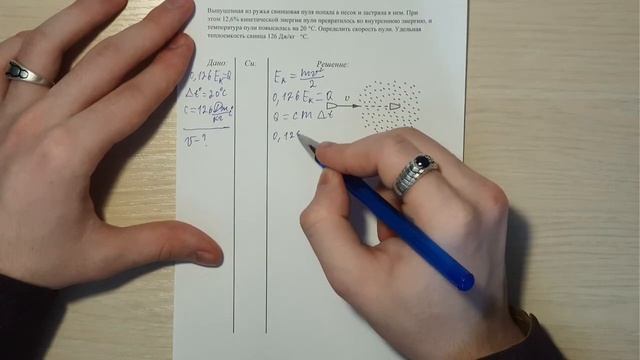 Выпущенная из ружья свинцовая пуля попала в песок и застряла в нем. При
этом 12,6% кинетической энергии пули превратилось во внутреннюю энергию, и
температура пули повысилась на 20 °C. Определить скорость пули. Удельная
теплоемкость свинца 126 Дж/кг · °C.
Дано: Си. Решение:
0,126 Eк=Q Eк = mv²/2
Δt°=20°C 0,126 Eк = Q v
c=126 Дж/кг°C Q = cmΔt
v-? 0,126